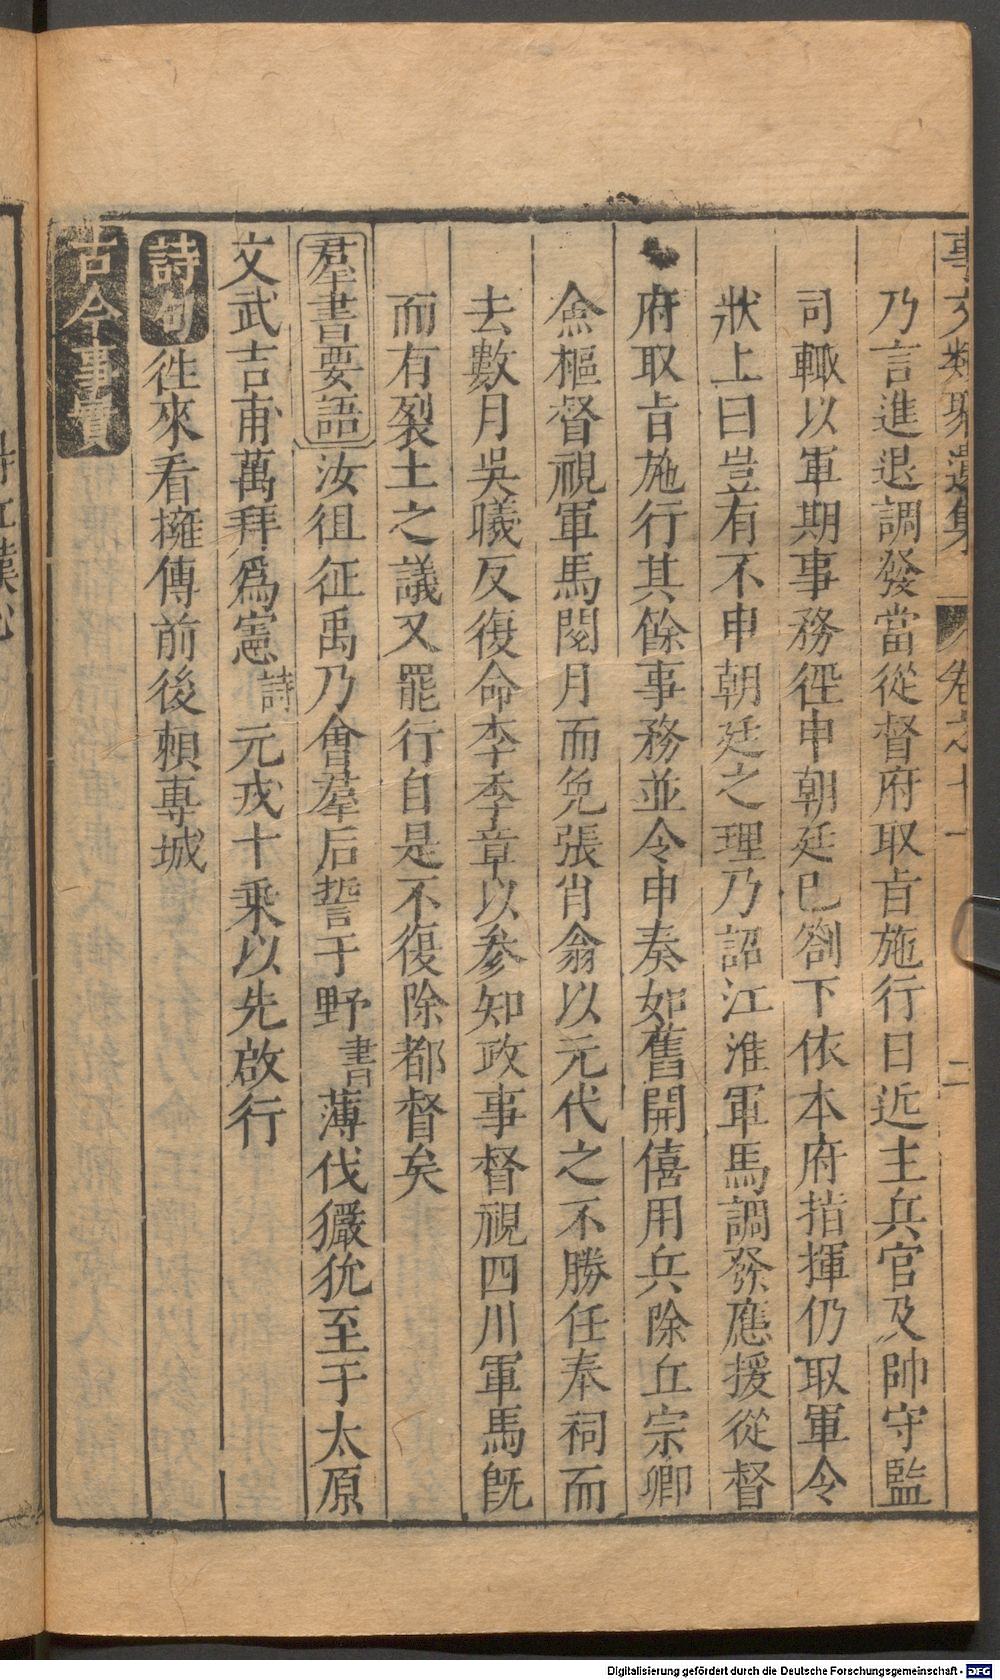 事文類聚遺集 卷之十一 二
乃言進退調發當從督府取㫖施行日近主兵官及帥守監
司輙以軍期事務徑申朝廷已劄下依本府指揮仍取軍令
狀上曰豈有不申朝廷之理乃詔江淮軍馬調發應援從督
府取㫖施行其餘事務並令申奏如舊開僖用兵除丘宗卿
僉樞督視軍馬閱月而免張肖翁以元代之不勝任奉祠而
去數月吳曦反復命李季章以參知政事督視四川軍馬旣
而有裂土之議又罷行自是不復除都督矣
羣書要語 汝徂征禹乃會羣后誓于野書 薄伐玁狁至于太原
文武吉甫萬拜爲憲詩 元戎十乘以先啟行
詩句 徃來看擁傳前後賴專城
古今事實
Digitalisierung gefördert durch die Deutsche Forschungsgemeinschaft - DFG